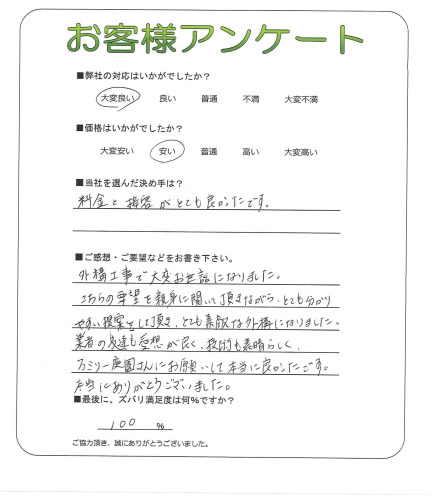 お客様アンケート
■弊社の対応はいかがでしたか？
大変良い 良い 普通 不満 大変不満
■価格はいかがでしたか？
大変安い 安い 普通 高い 大変高い
■当社を選んだ決め手は？
料金と接客がとても良かったです。
■ご感想・ご要望などをお書き下さい。
外構工事で大変お世話になりました。
こちらの要望を親身に聞いて頂きながら、とても分かり
やすい提案をして頂き、とても素敵な外構になりました。
業者の皆も愛想が良く、技術も素晴らしく、
ファミリー庭園さんにお願いして本当に良かったです。
本当にありがとうございました。
■最後に、ズバリ満足度は何％ですか？
100 ％
ご協力頂き、誠にありがとうございました。